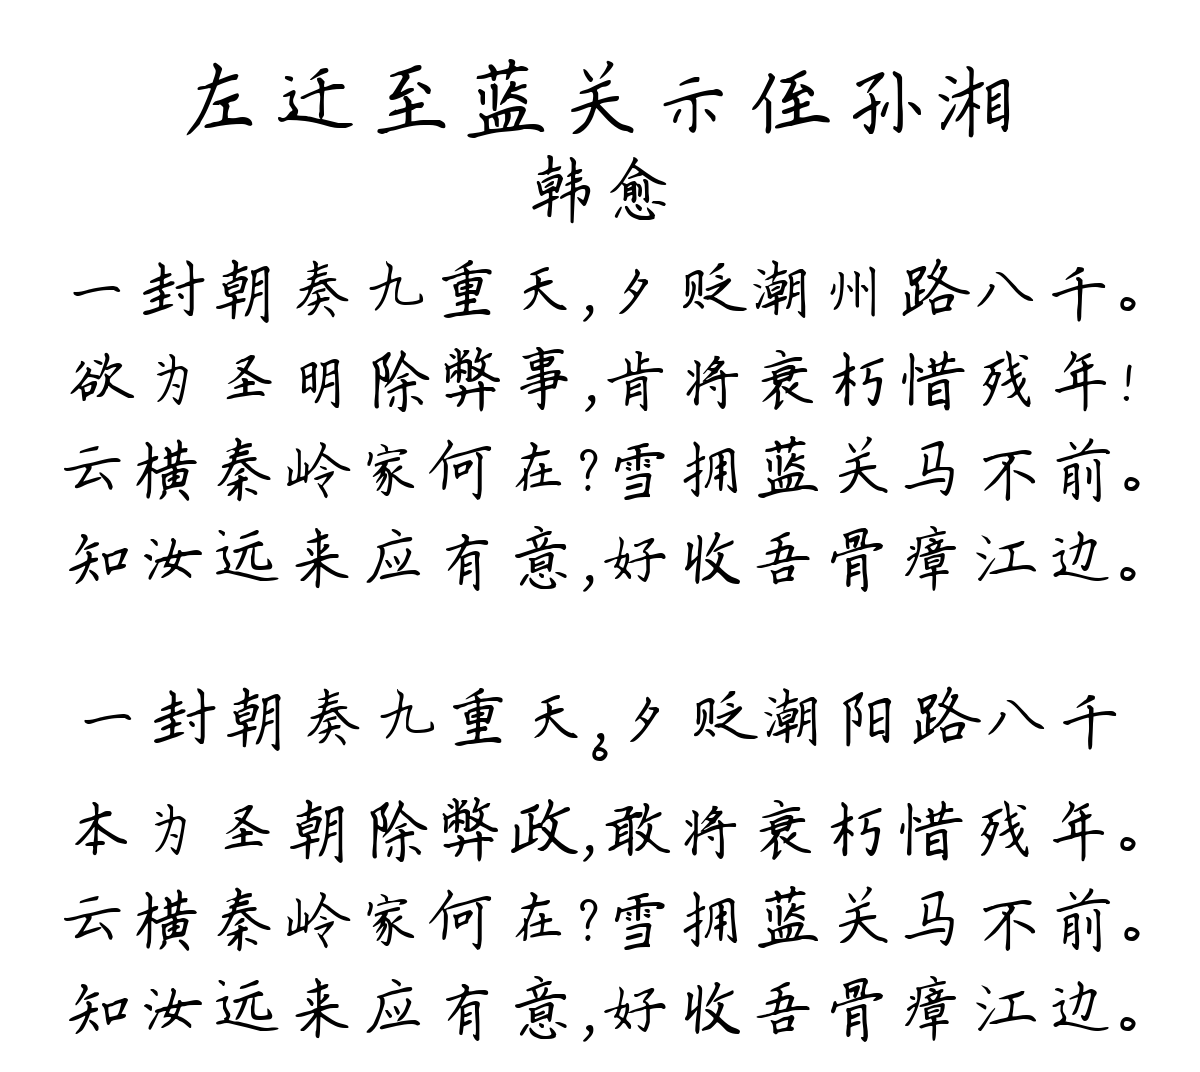 左迁至蓝关示侄孙湘
韩愈
一封朝奏九重天,夕贬潮州路八千。
欲为圣明除弊事,肯将衰朽惜残年!
云横秦岭家何在?雪拥蓝关马不前。
知汝远来应有意,好收吾骨瘴江边。
一封朝奏九重天,夕贬潮阳路八千
。
本为圣朝除弊政,敢将衰朽惜残年。
云横秦岭家何在?雪拥蓝关马不前。
知汝远来应有意,好收吾骨瘴江边。